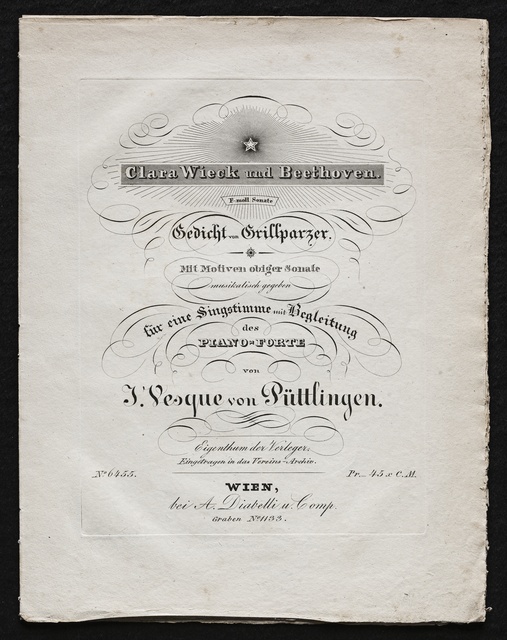 Clara Wieck und Beethoven.
F-moll Sonate
Gedicht von Grillparzer.
Mit Motiven obiger Sonate
musikalisch gegeben
für eine Singstimme mit Begleitung
des
PIANO-FORTE
von
J. Vesque von Püttlingen.
Eigenthum der Verleger.
Eingetragen in das Vereins-Archiv.
No. 6455. Pr. 45 x C.M.
WIEN,
bei A. Diabelli u. Comp.
Graben No. 1133.